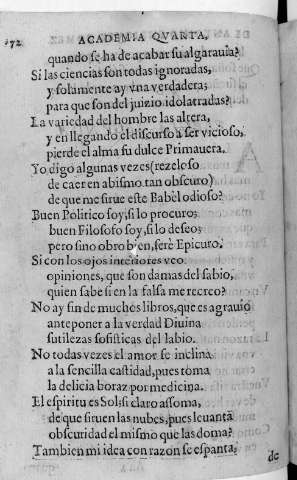 172 ACADEMIA QVARTA,
quando se ha de acabar su algarauia?
Si las ciencias son todas ignoradas,
y solamente ay vna verdadera;
para que son del juizio idolatradas?
La variedad del hombre las altera,
y en llegando el discurso a ser vicioso,
pierde el alma su dulce Primauera.
Yo digo algunas vezes (rezeloso
de caer en abismo tan obscuro)
de que me sirue este Babel odioso?
Buen Politico soy, si lo procuro;
buen Filosofo soy, si lo deseo;
pero sino obro bien, serè Epicuro.
Si con los ojos interiores veo
opiniones, que son damas del sabio,
quien sabe si en la falsa me recreo?
No ay fin de muchos libros, que es agrauio
anteponer a la verdad Diuina
sutilezas sofisticas del labio.
No todas vezes el amor se inclina
a la sencilla castidad, pues toma
la delicia boraz por medicina.
El espiritu es Sol: si claro assoma,
de que siruen las nubes, pues leuanta
obscuridad el mismo que las doma?
Tambien mi idea con razon se espanta,
de